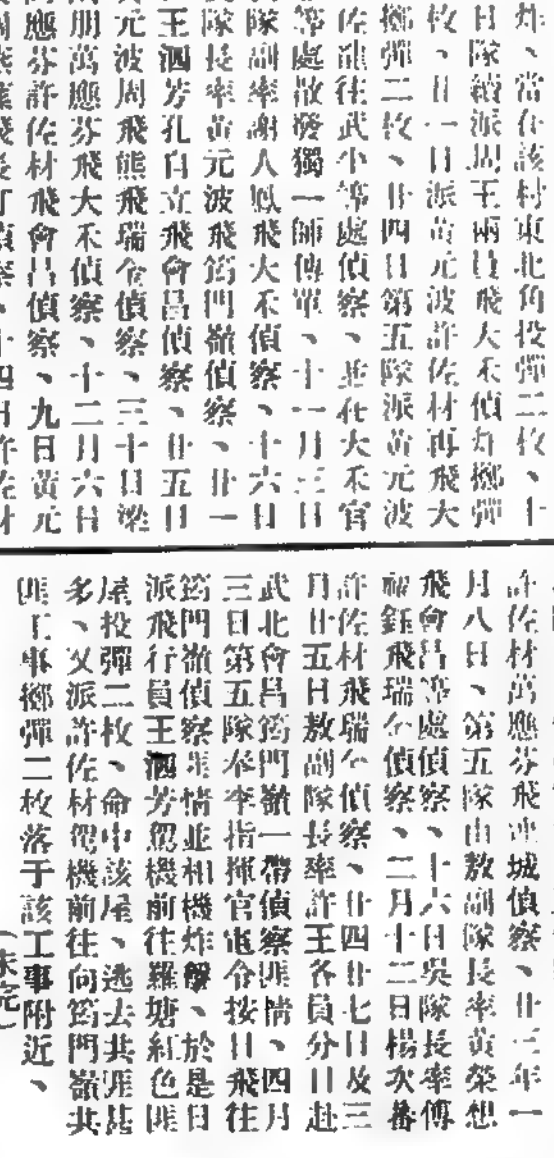 炸、當在該村東北角投彈二枚、十
日隊續派周王兩員飛大禾偵炸擲彈
枚、廿一日派黃元波許佐材再飛大
擲彈二枚、廿四日第五隊派黃元波
佐誰往武小等處偵察、並在大禾官
等處散發獨一師傳單、十一月三日
隊副率謝人鳳飛大禾偵察、十六日
隊長率黃元波飛筠門嶺偵察、廿一
王泗芳孔自立飛會昌偵察、廿五日
元波周飛熊飛瑞金偵察、三十日梁
朋萬應芬飛大禾偵察、十二月六日
應芬許佐材飛會昌偵察、九日黃元
偵察、十四日許佐材
許佐材萬應芬飛連城偵察、廿三年一
月八日、第五隊由敖副隊長率黃榮想
飛會昌等處偵察、十六日吳隊長率傅
鈺飛瑞金偵察、二月十二日楊次番
許佐材飛瑞金偵察、廿四廿七日及三
月廿五日敖副隊長率許王各員分日赴
武北會昌筠門嶺一帶偵察匪情、四月
三日第五隊奉李指揮官電令按日飛往
筠門嶺偵察匪情並相機炸擊、於是日
派飛行員王泗芳駕機前往羅塘紅色匪
屋投彈二枚、命中該屋、逃去共匪甚
多、又派許佐材駕機前往向筠門嶺共
匪工事擲彈二枚落于該工事附近、
(未完)